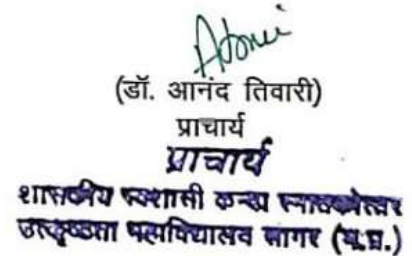 (डॉ. आनंद तिवारी)
प्राचार्य
प्राचार्य
शासकीय स्वशासी कन्या स्नातकोत्तर
उत्कृष्ठता महाविद्यालय सागर (म.प्र.)